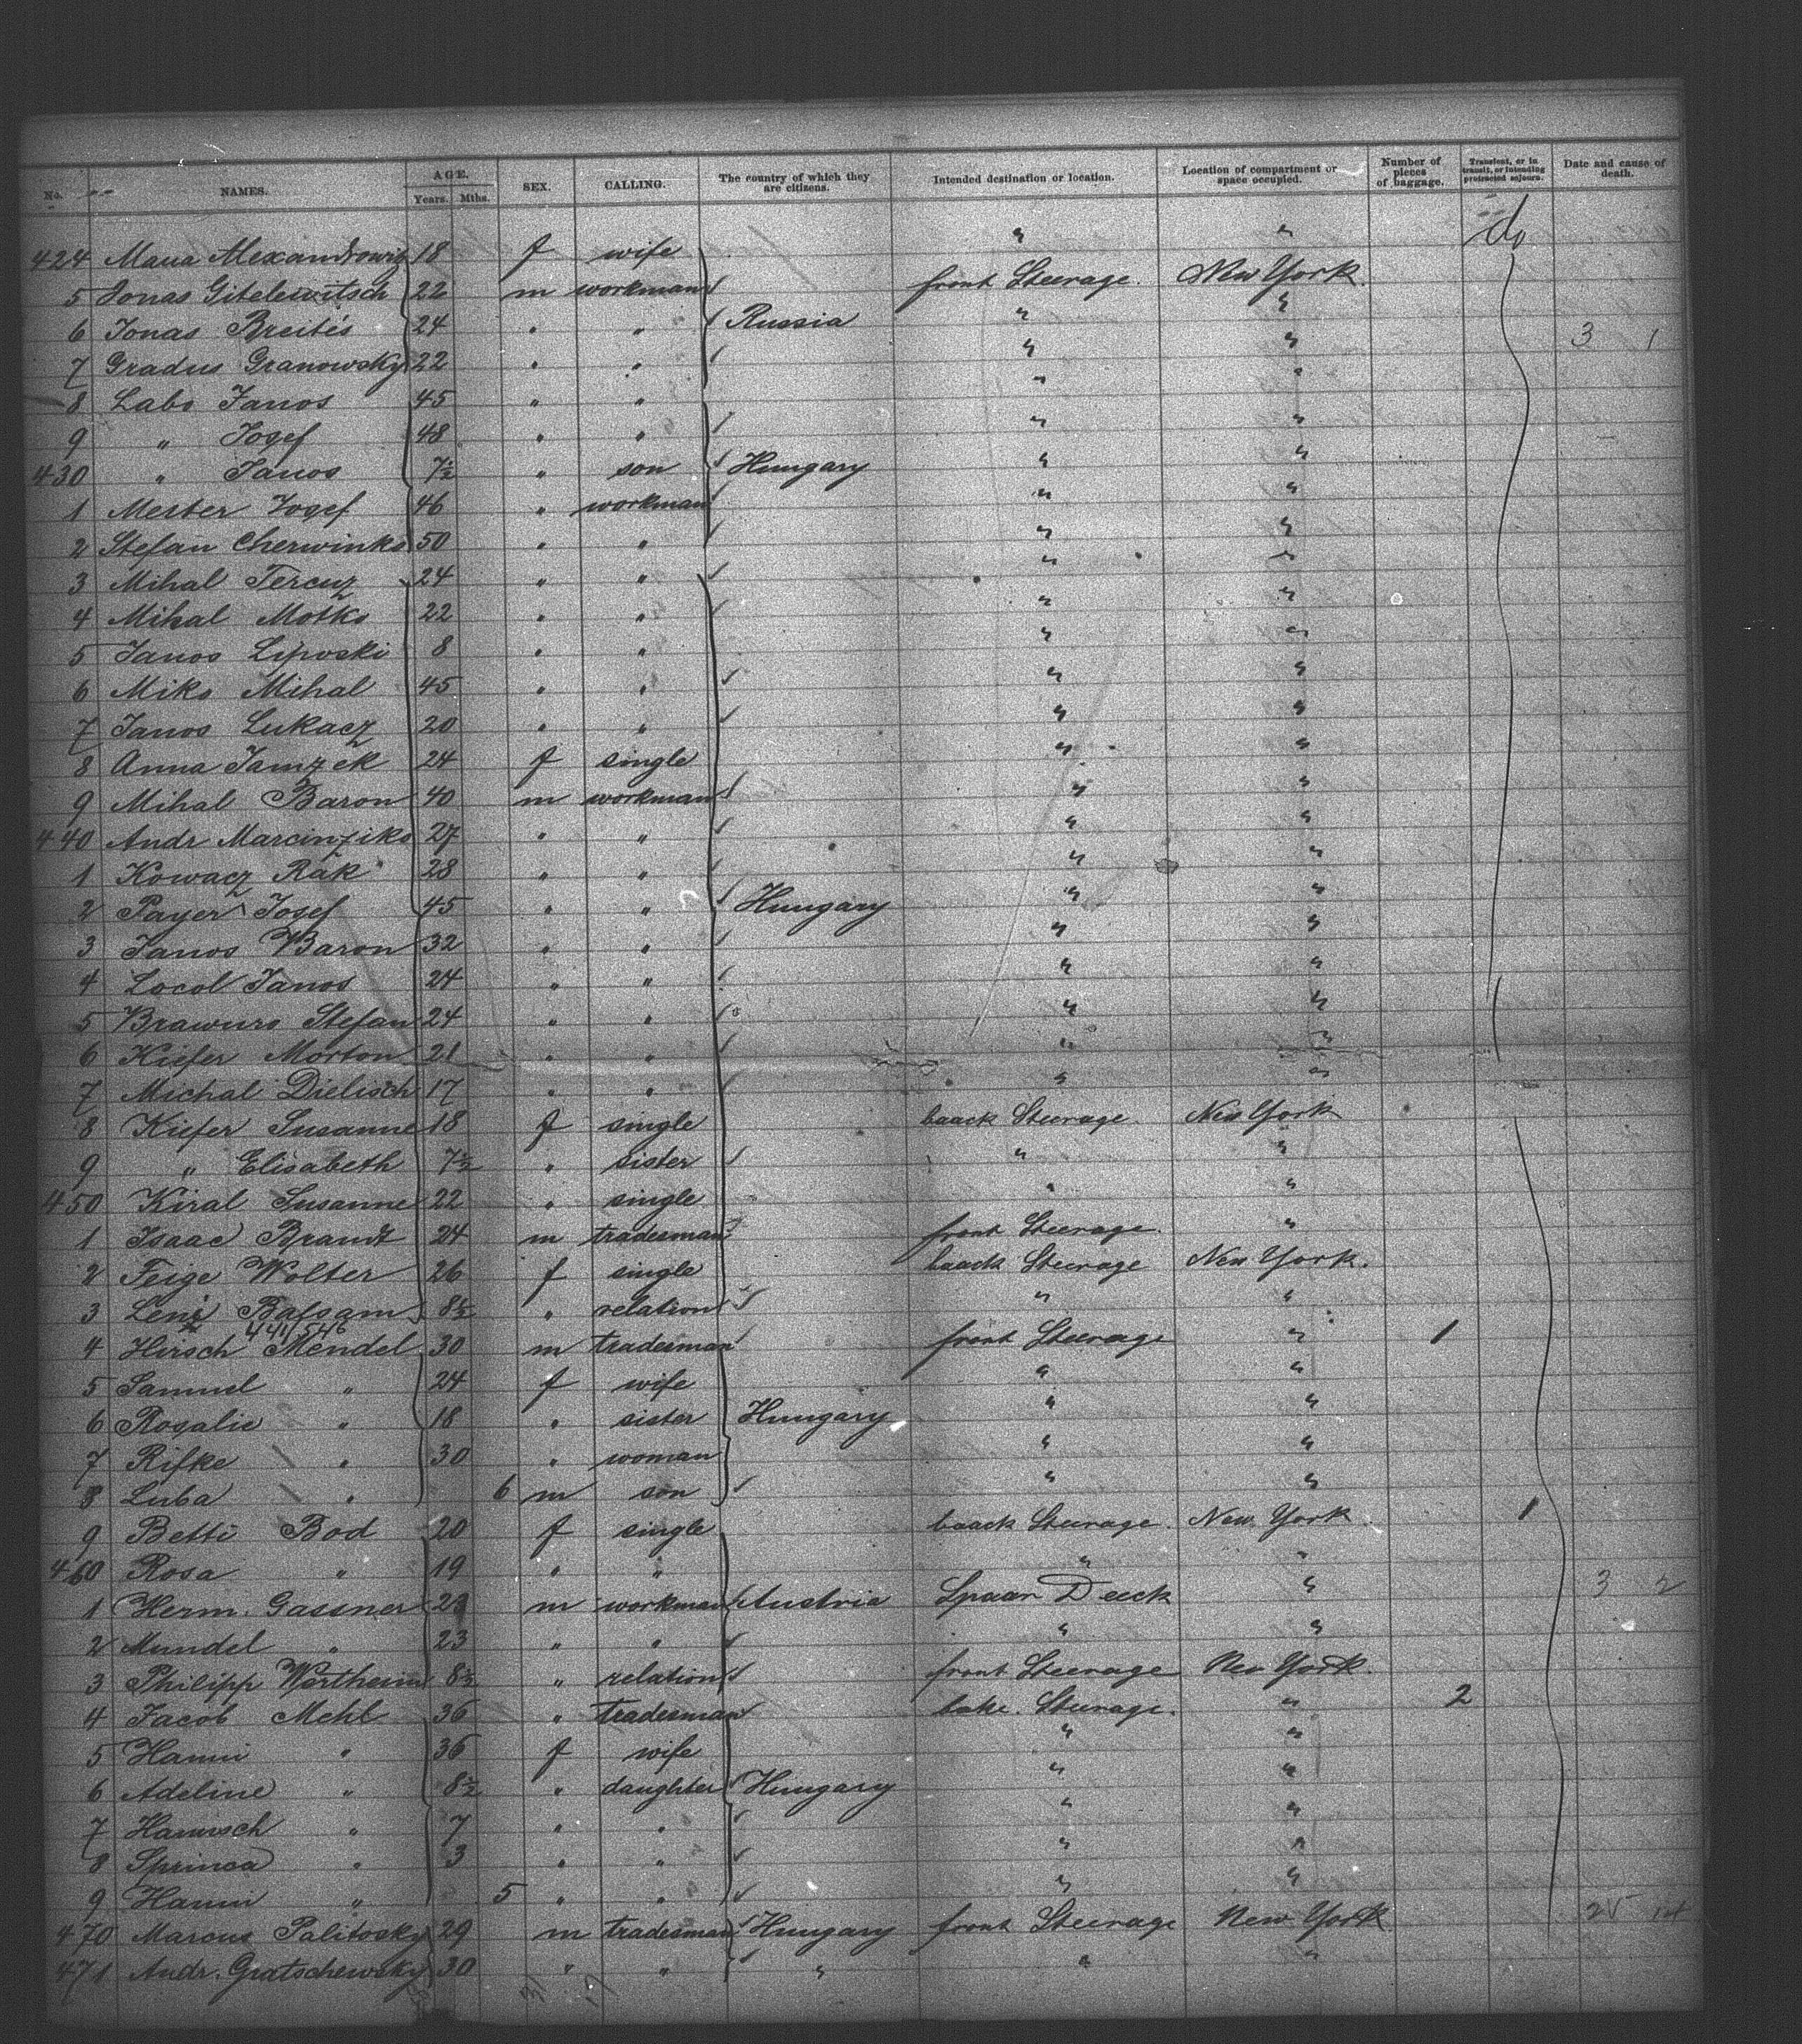 No. NAMES. AGE. Years. Mths. SEX. CALLING. The country of which they are citizens. Intended destination or location. Location of compartment or space occupied. Number of pieces of baggage. Transient, or in transit, or intending protracted sojourn. Date and cause of death.
424 Alexandrowitz 18 f wife " " do
5 Jonas Gitelewitsch 22 m workman front Steerage. New York.
6 Jonas Breités 24 " " Russia " "
7 Gradus Granowsky 22 " " " " 3 1
8 Labo Janos 45 " " " "
9 " Josef 48 " " " "
430 " Janos 7½ " son Hungary " "
1 Mester Josef 46 " workman " "
2 Stefan Cherwinko 50 " " " "
3 Mihal Tercuz 24 " " " "
4 Mihal Motko 22 " " " "
5 Janos Lipvski 8 " " " "
6 Miko Mihal 45 " " " "
7 Janos Lukacz 20 " " " "
8 Anna Jamzek 24 f single " "
9 Mihal Baron 40 m workman " "
440 Andr Marcinziko 27 " " " "
1 Kowacz Rák 28 " " " "
2 Payer Josef 45 " " Hungary " "
3 Janos Baron 32 " " " "
4 Locol Janos 24 " " " "
5 Brawuro Stefan 24 " " " "
6 Kiefer Morton 21 " " " "
7 Michal Dielisch 17 " " " "
8 Kiefer Susanne 18 f single baack Steerage. New York
9 " Elisabeth 7½ " sister " "
450 Kiral Susanne 22 " single " "
1 Isaac Brandt 24 m tradesman front Steerage. "
2 Feige Wolter 26 f single baack Steerage New York.
3 Balsam 8½ " relation " "
441/546
4 Hirsch Mendel 30 m tradesman front Steerage " 1
5 Samuel " 24 f wife " "
6 Rosalie " 18 " sister Hungary " "
7 Rifke " 30 " woman " "
8 Luba " 6 m son " "
9 Betti Bod 20 f single baack Steerage. New York. 1
460 Rosa " 19 " " " "
1 Herm. Gassner m workman Austria Spaar Deeck " 3 2
2 Mundel " 23 " " " "
3 Philipp Wertheim 8½ " relation front Steerage New York.
4 Jacob Mehl 36 " tradesman bake. Steerage. " 2
5 Hanni " 36 f wife " "
6 Adeline " 8½ " daughter Hungary " "
7 " 7 " " " "
8 Sprinca " 3 " " " "
9 Hanni " 5 " " " "
470 Marcus Palitosky 29 m tradesman Hungary front Steerage New York 25 14
471 Andr. Gratschewsky 30 " " " " "